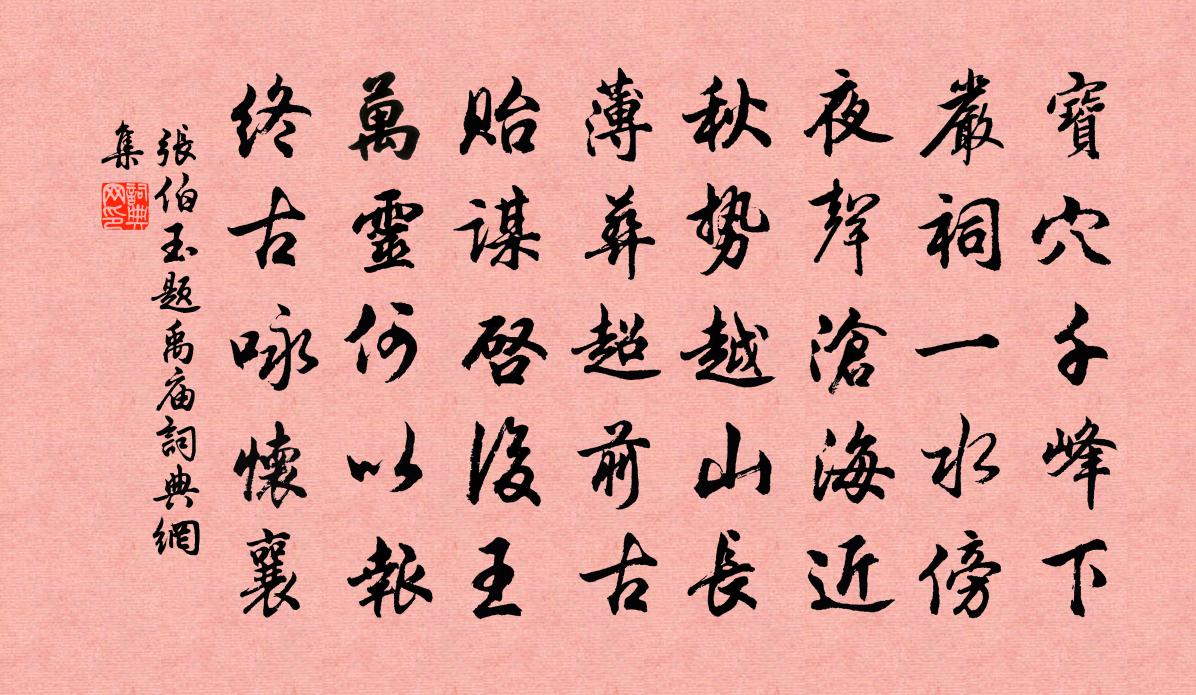 寶穴千峰下
嚴祠一水傍
夜聲滄海近
秋勢越山長
薄葬超前古
貽謀啓後王
萬靈何以報
終古咏懷襄
張伯玉題禹庙詞典網
集
詞典
网印